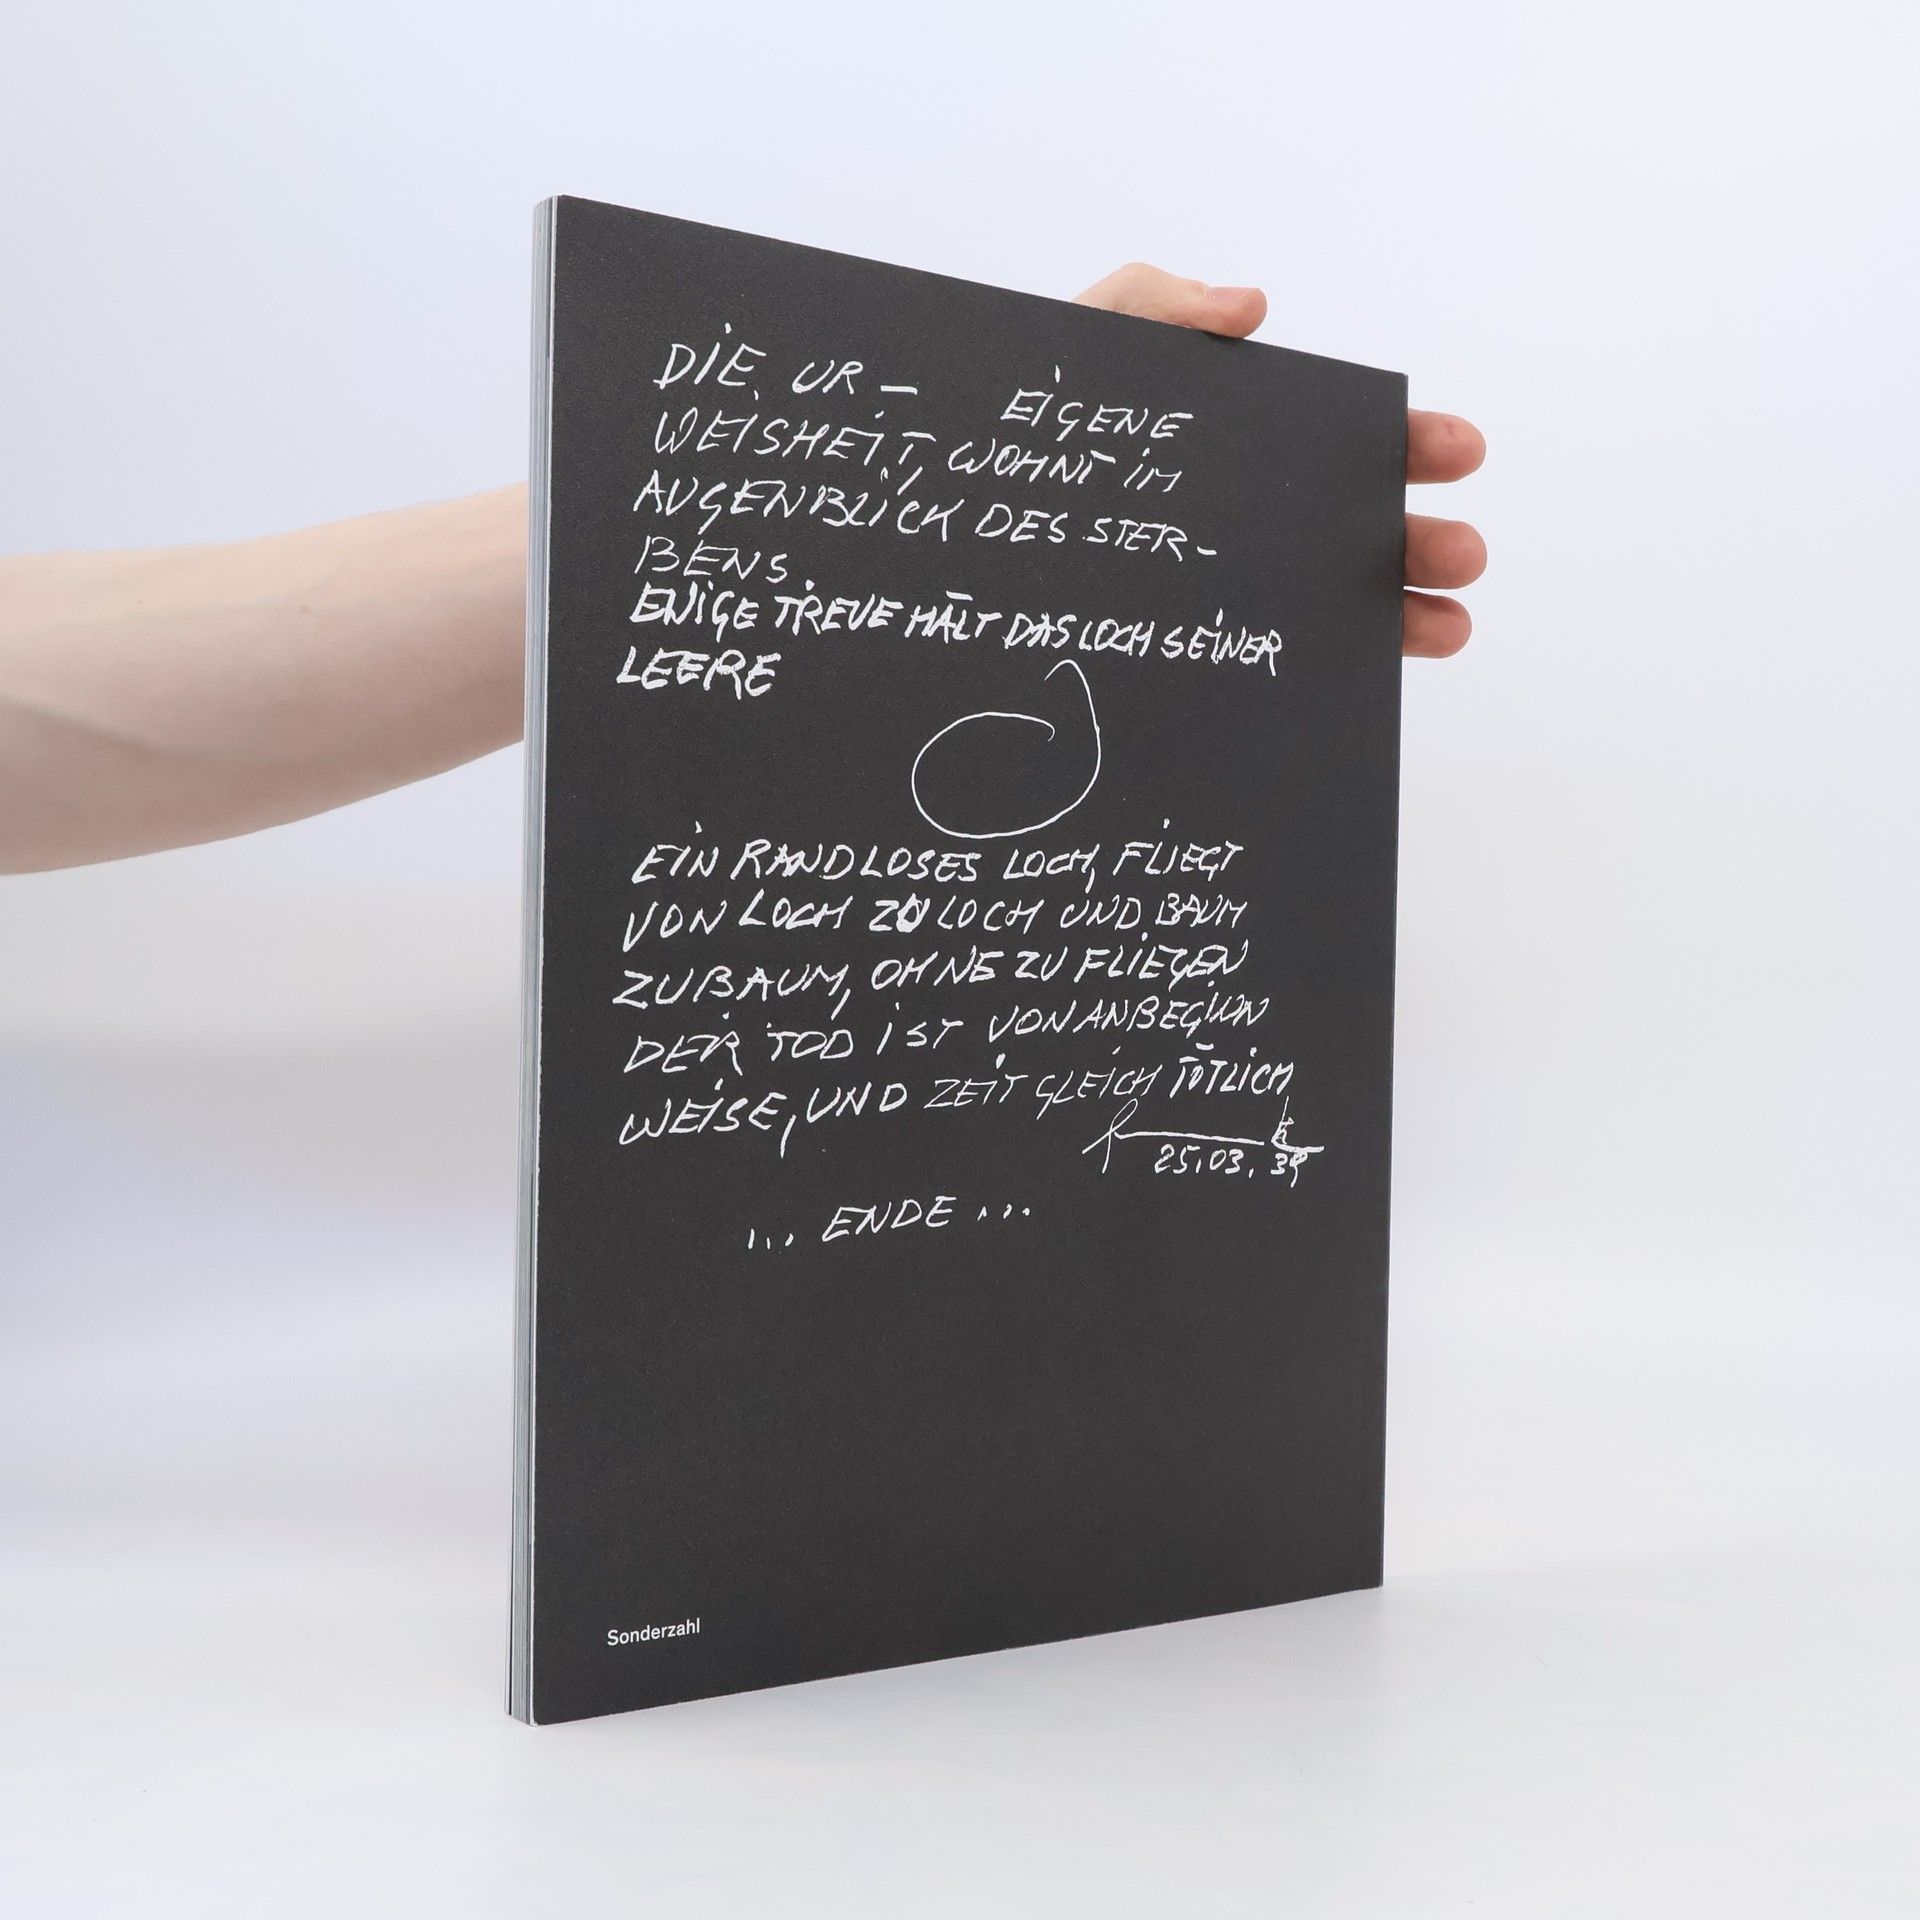 DIE UR- EIGENE
WEISHEIT, WOHNT IM
AUGENBLICK DES STER-
BENS.
EWIGE TREUE HÄLT DAS LOCH SEINER
LEERE
EIN RANDLOSES LOCH, FLIEGT
VON LOCH ZU LOCH UND BAUM
ZU BAUM, OHNE ZU FLIEGEN
DER TOD IST VON ANBEGINN
WEISE, UND ZEITGLEICH TÖTLICH
25.03.39
... ENDE ...
Sonderzahl